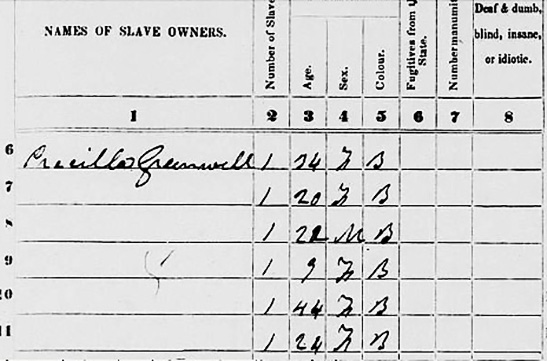 NAMES OF SLAVE OWNERS. Number of Slave Age. Sex. Colour. Fugitives from State. Number manumit Deaf & dumb, blind, insane, or idiotic.
1 2 3 4 5 6 7 8
6 Precilla Greenwell 1 24 F B
7 1 20 F B
8 1 22 M B
9 1 9 F B
10 1 44 F B
11 1 24 F B